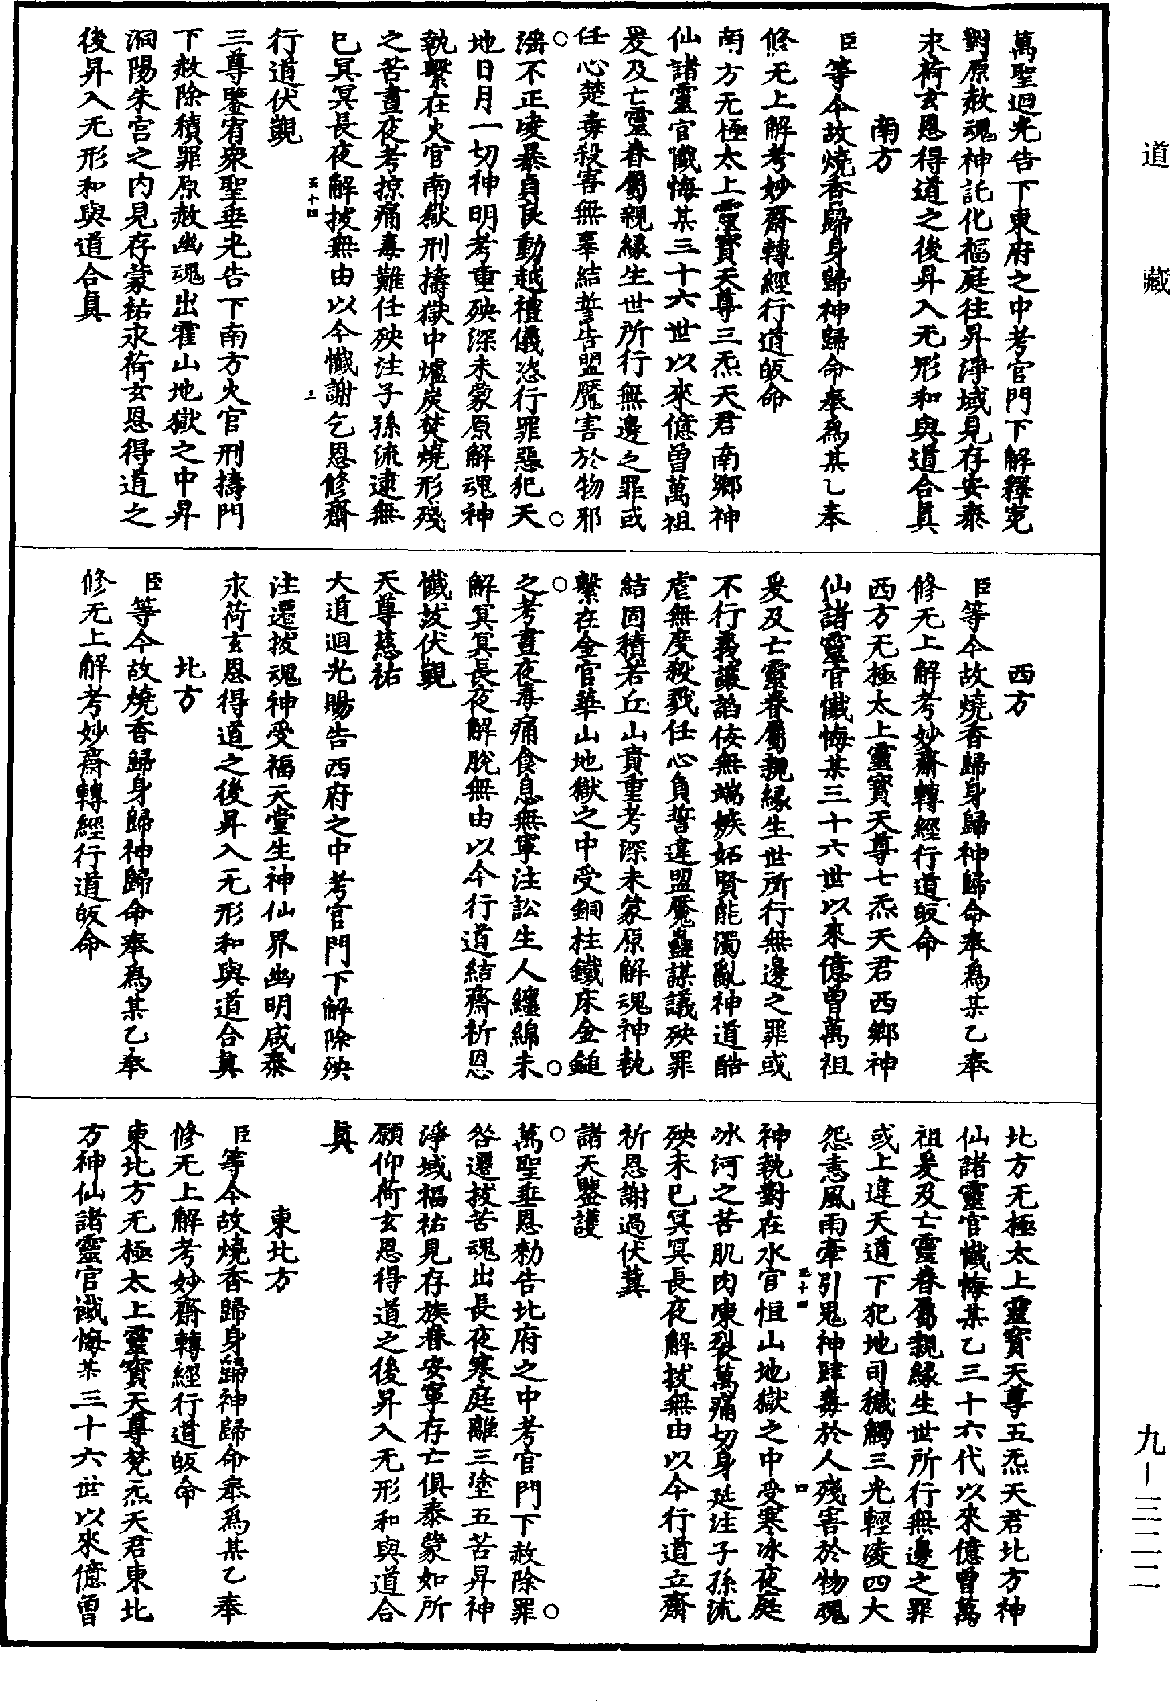 道藏
萬聖迴光告下東府之中考官門下解釋冤
對原赦魂神託化福庭往昇淨域見存安泰
永荷玄恩得道之後昇入无形和與道合眞
南方
臣等今故燒香歸身歸神歸命奉爲某乙奉
修无上解考妙齋轉經行道皈命
南方无極太上靈寶天尊三炁天君南鄉神
仙諸靈官懺悔某三十六世以來億曾萬祖
爰及亡靈眷屬親緣生世所行無邊之罪或
任心楚毒殺害無辜結誓告盟魘害於物邪
淫不正凌暴貞良動越禮儀恣行罪惡犯天
地日月一切神明考重殃深未蒙原解魂神
執繫在火官南嶽刑擣獄中爐炭焚燒形殘
之苦晝夜考掠痛毒難任殃注子孫流逮無
已冥冥長夜解拔無由以今懺謝乞恩修齋
五十四
三
行道伏觀
三尊鑒宥衆聖垂光告下南方火官刑擣門
下赦除積罪原赦幽魂出霍山地獄之中昇
洞陽朱宮之內見存蒙祐永荷玄恩得道之
後昇入无形和與道合眞
西方
臣等今故燒香歸身歸神歸命奉爲某乙奉
修无上解考妙齋轉經行道皈命
西方无極太上靈寶天尊七炁天君西鄉神
仙諸靈官懺悔某三十六世以來億曾萬祖
爰及亡靈眷屬親緣生世所行無邊之罪或
不行義讓諂佞無端嫉妬賢能濁亂神道酷
虐無度殺戮任心負誓違盟魘蠱謀議殃罪
結固積若丘山責重考深未蒙原解魂神執
繫在金官華山地獄之中受銅柱鐵床金鎚
之考晝夜毒痛食息無寧注訟生人纏綿未
解冥冥長夜解脫無由以今行道結齋祈恩
懺拔伏觀
天尊慈祐
大道迴光賜告西府之中考官門下解除殃
注遷拔魂神受福天堂生神仙界幽明咸泰
永荷玄恩得道之後昇入无形和與道合眞
北方
臣等今故燒香歸身歸神歸命奉爲某乙奉
修无上解考妙齋轉經行道皈命
北方无極太上靈寶天尊五炁天君北方神
仙諸靈官懺悔某乙三十六代以來億曾萬
祖爰及亡靈眷屬親緣生世所行無邊之罪
或上違天道下犯地司穢觸三光輕凌四大
怨恚風雨牽引鬼神肆毒於人殘害於物魂
五十四
四
神執對在水官恒山地獄之中受寒冰夜庭
冰河之苦肌肉凍裂萬痛切身延注子孫流
殃未已冥冥長夜解拔無由以今行道立齋
祈恩謝過伏冀
諸天鑒護
萬聖垂恩勑告北府之中考官門下赦除罪
咎遷拔苦魂出長夜寒庭離三塗五苦昇神
淨域福祐見存族眷安寧存亡俱泰蒙如所
願仰荷玄恩得道之後昇入无形和與道合
眞
東北方
臣等今故燒香歸身歸神歸命奉爲某乙奉
修无上解考妙齋轉經行道皈命
東北方无極太上靈寶天尊梵炁天君東北
方神仙諸靈官懺悔某三十六世以來億曾
九一三二二